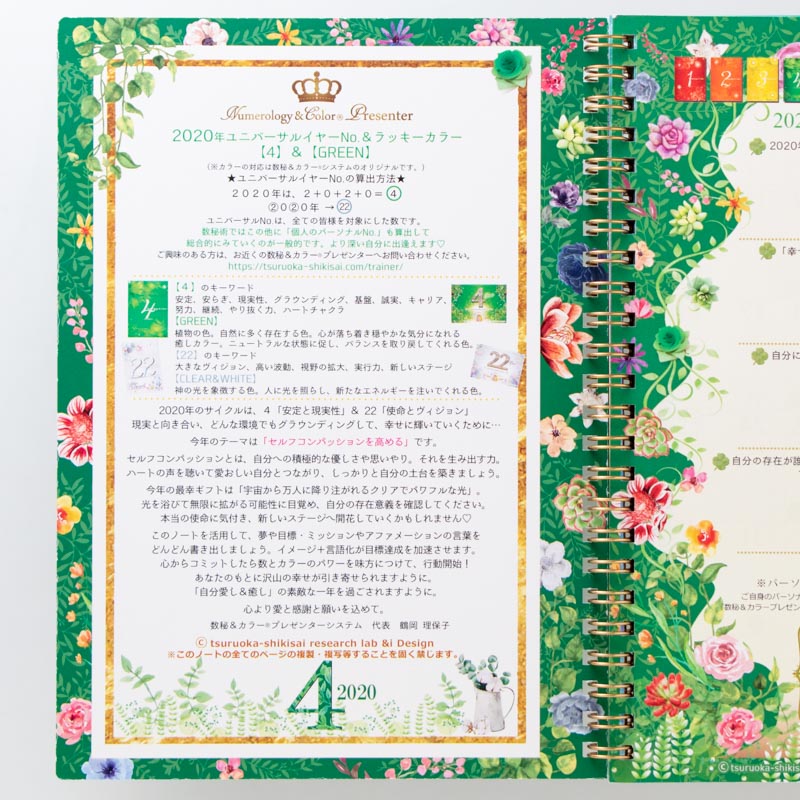 Numerology & Color® Presenter
2020年ユニバーサルイヤーNo.&ラッキーカラー
【4】&【GREEN】
(※カラーの対応は数秘&カラー®システムのオリジナルです。)
★ユニバーサルイヤーNo.の算出方法★
2020年は、2+0+2+0=④
②⓪②⓪年 →㉒
ユニバーサルNo.は、全ての皆様を対象にした数です。
数秘術ではこの他に「個人のパーソナルNo.」も算出して
総合的にみていくのが一般的です。より深い自分に出逢えます♡
ご興味のある方は、お近くの数秘&カラー®プレゼンターへお問い合わせください。
https://tsuruoka-shikisai.com/trainer/
4
4
【4】のキーワード
安定、安らぎ、現実性、グラウンディング、基盤、誠実、キャリア、
努力、継続、やり抜く力、ハートチャクラ
【GREEN】
植物の色。自然に多く存在する色。心が落ち着き穏やかな気分になれる
癒しカラー。ニュートラルな状態に促し、バランスを取り戻してくれる色。
22
22
【22】のキーワード
大きなヴィジョン、高い波動、視野の拡大、実行力、新しいステージ
【CLEAR&WHITE】
神の光を象徴する色。人に光を照らし、新たなエネルギーを注いでくれる色。
2020年のサイクルは、4「安定と現実性」& 22「使命とヴィジョン」
現実と向き合い、どんな環境でもグラウンディングして、幸せに輝いていくために…
今年のテーマは「セルフコンパッションを高める」です。
セルフコンパッションとは、自分への積極的な優しさや思いやり。それを生み出す力。
ハートの声を聴いて愛おしい自分とつながり、しっかりと自分の土台を築きましょう。
今年の最幸ギフトは「宇宙から万人に降り注がれるクリアでパワフルな光」。
光を浴びて無限に拡がる可能性に目覚め、自分の存在意義を確認してください。
本当の使命に気付き、新しいステージへ開花していくかもしれません♡
このノートを活用して、夢や目標・ミッションやアファメーションの言葉を
どんどん書き出しましょう。イメージ+言語化が目標達成を加速させます。
心からコミットしたら数とカラーのパワーを味方につけて、行動開始!
あなたのもとに沢山の幸せが引き寄せられますように。
「自分愛し&癒し」の素敵な一年を過ごされますように。
心より愛と感謝と願いを込めて。
数秘&カラー®プレゼンターシステム 代表 鶴岡 理保子
ⓒ tsuruoka-shikisai research lab &i Design
※このノートの全てのページの複製・複写等することを固く禁じます。
4 2020
1 2 3 4
202
2020
「幸せ
自分に
自分の存在が誰
※パーソ
ご自身のパーソナ
数秘&カラープレゼン
ⓒtsuruoka-shikis